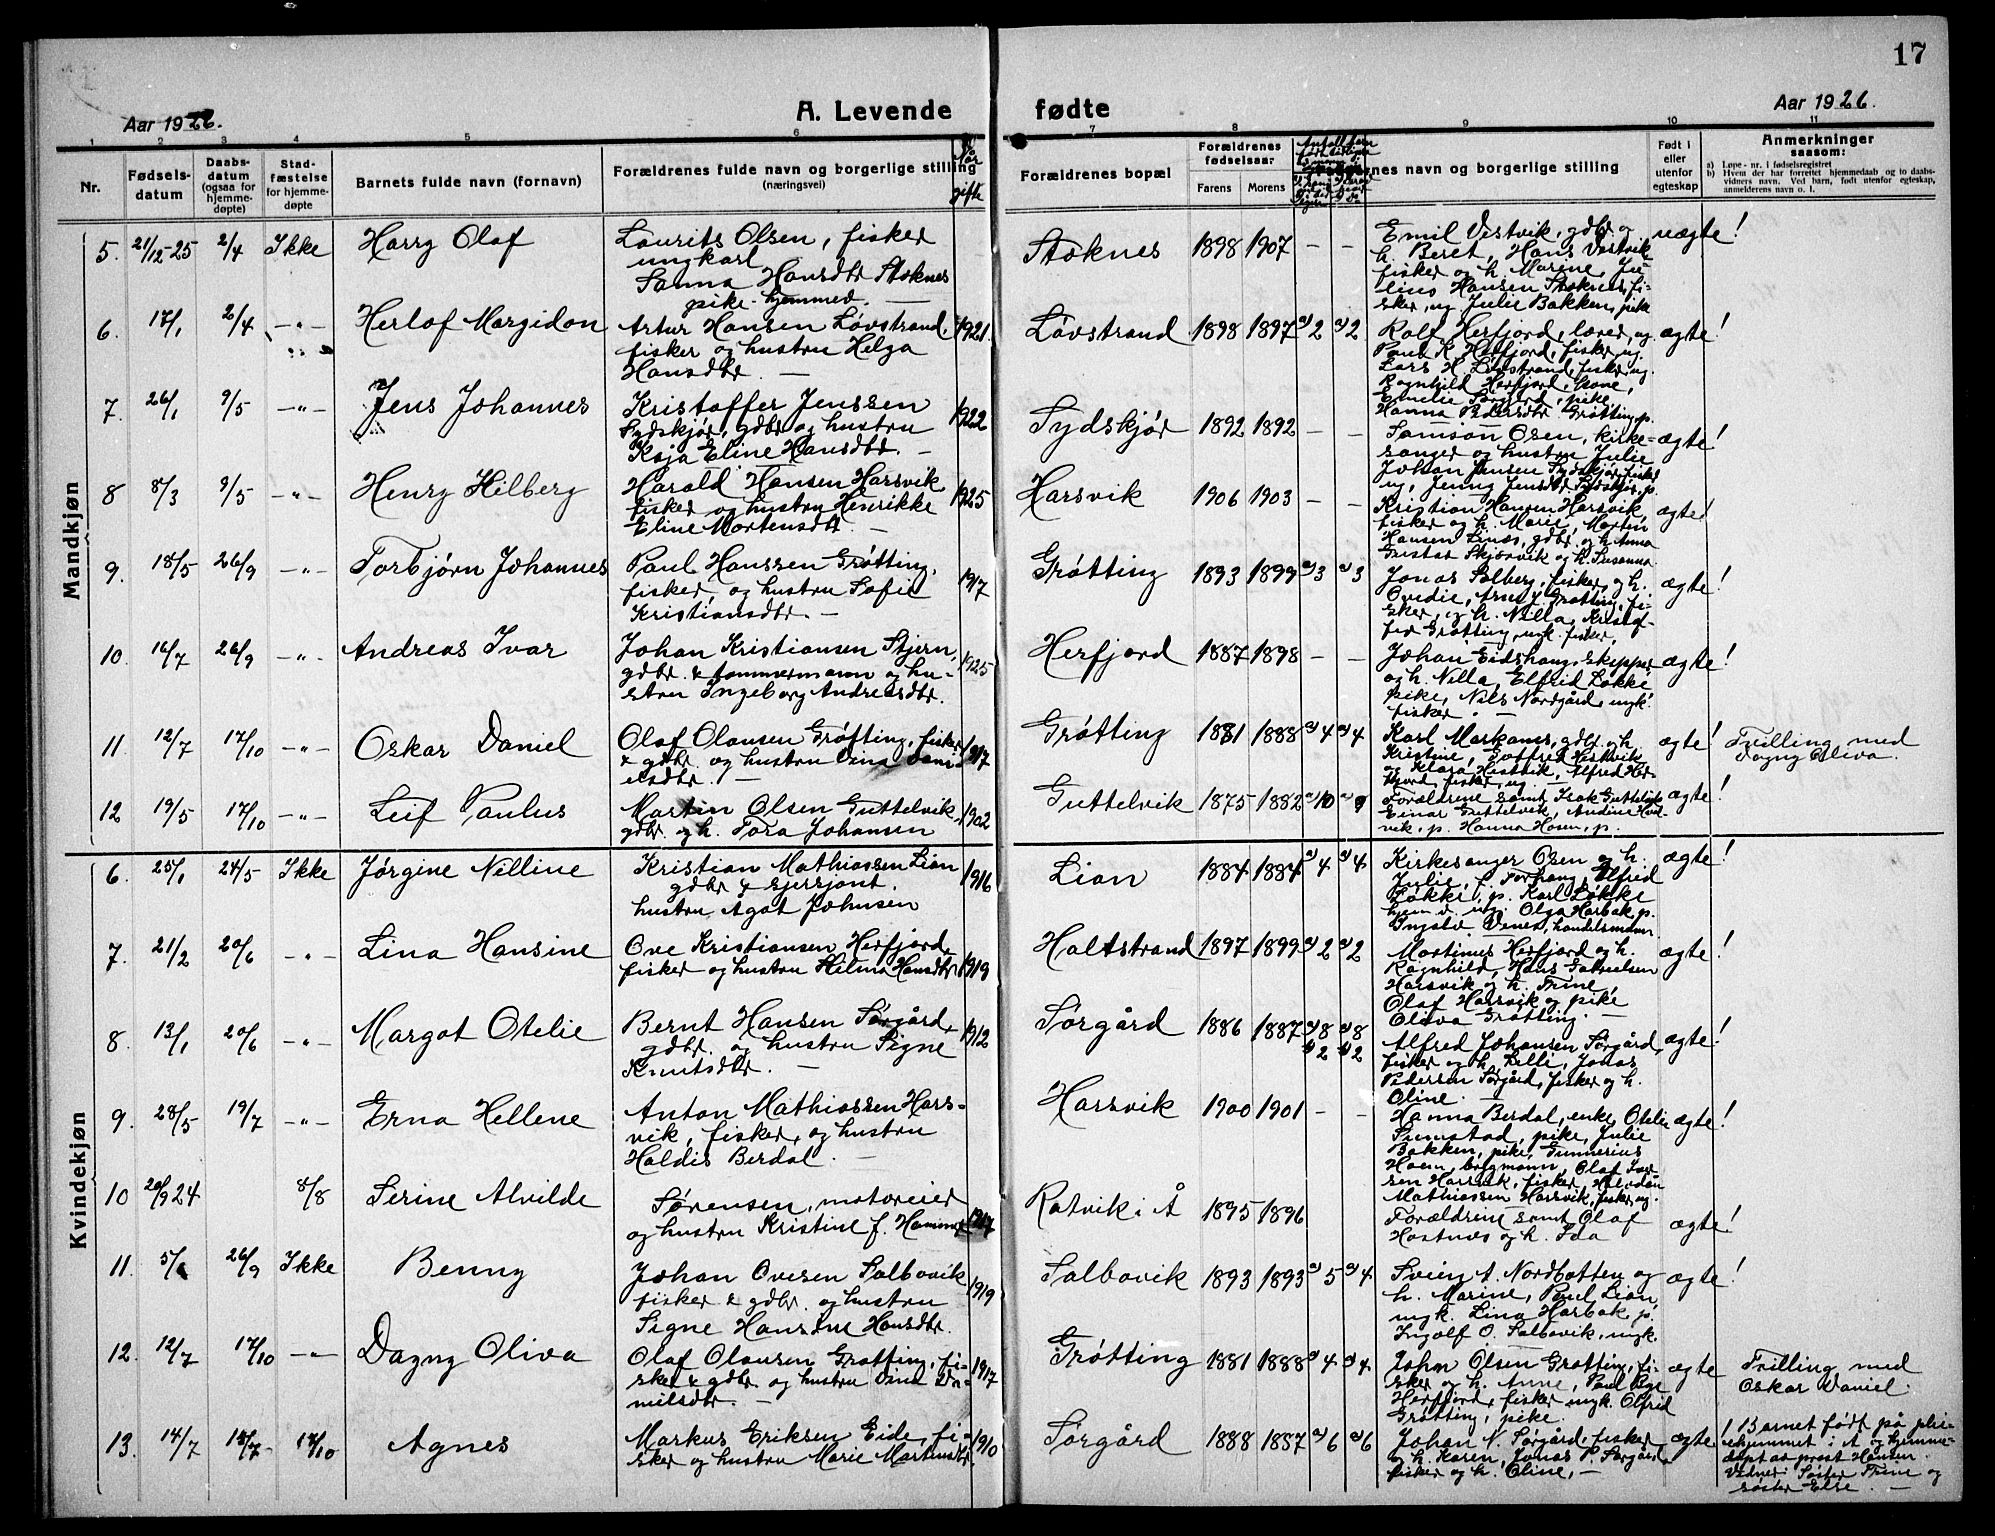 17
Aar 1926.
A. Levende
fødte
Aar 1926.
1 2 3 4 5 6 7 8 9 10 11
Nr.
Fødsels-
datum
Daabs-
datum
(ogsaa for
hjemme-
døpte)
Stad-
fæstelse
for hjemme-
døpte
Barnets fulde navn (fornavn)
Forældrenes fulde navn og borgerlige stilling
(næringsvei)
Naar
gifte
Forældrenes bopæl
Forældrenes
fødselsaar
Farens Morens
navn og borgerlige stilling
Født i
eller
utenfor
egteskap
Anmerkninger
saasom:
a) Løpe-nr. i fødselsregistret
b) Hvem der har forrettet hjemmedaab og to daabs-
vidners navn. Ved barn, født utenfor egteskap,
anmelderens navn o. l.
Mandkjøn
5. 21/12-25 2/4 Ikke Harry Olaf
Laurits Olsen, fisker
ungkarl
Sanna Hansdtr Stoknes
pike hjemmev. —
Stoknes 1898 1907 — —
Emil Vestvik, gdbr og
h. Beret, Hans Vestvik
fisker og h. Marene, Ju-
lius Hansen Stoknes, fi-
sker, og Julie Bakken, pike
uægte!
6. 17/1 2/4 —„— Herlof Margidon
Artur Hansen Løvstrand,
fisker og hustru Helga
Hansdtr. —
1921.
Løvstrand 1898 1897 a) 2 a) 2
Rolf Herfjord, lærer, og
Paul K. Herfjord, fisker og
Lars H. Løvstrand, fisker og
Ragnhild Herfjord, kone,
Emelie Sørgård, pike
Hanna Pedersdtr Grøtting, p.
ægte!
7. 26/1 9/5 —„— Jens Johannes
Kristoffer Jenssen
Sydskjør, gdbr og hustru
Kaja Eline Hansdtr. —
1922
Sydskjør 1892 1892 — —
Samson Osen, kirke-
sanger og hustru Julie
Johan Jensen Sydskjør, fisker
og Jenny Jensdtr Sydskjør, p.
ægte!
8 8/3 9/5 —„— Henry Hilberg
Harald Hansen Harsvik
fisker og hustru Henrikke
Eline Mortensdtr. —
1925
Harsvik 1906 1903 — —
Kristian Hansen Harsvik,
fisker og h. Marie, Martin
Hansen Lines, gdbr. og h. Anna
Gustav Skjærvik og h. Susanna
ægte!
9. 18/5 26/9 —„— Torbjørn Johannes
Paul Hanssen Grøtting,
fisker, og hustru Sofie
Kristiansdtr. —
1917
Grøtting 1893 1899 a) 3 a) 3
Jonas Solberg, fisker, og h.
Ovedie, Arne J. Grøtting, fi-
sker, og h. Nilla, Kristof-
fer Grøtting, ungk. fisker,
ægte!
10. 16/7 26/9 —„— Andreas Ivar
Johan Kristiansen Stjern,
gdbr. & tømmermann og hu-
stru Ingeborg Andreasdtr.
1925
Herfjord 1887 1898 — —
Johan Eidshaug, skipper
og h. Nilla, Elfrid Løkke
pike, Nils Nordgård, ungk.
fisker. —
ægte!
11 12/7 17/10 —„— Oskar Daniel
Olaf Olausen Grøtting, fisker
& gdbr. og hustru Oma Dani-
elsdtr. —
1917
Grøtting 1881 1888 a) 4 a) 4
Karl Markams, gdbr og h.
Kristine, Hestvik
og Klara Hestvik, Alfred Her-
fjord, fisker, ug
ægte!
Tvilling med
Dagny Oliva.
12 19/5 17/10 —„— Leif Paulus
Martin Olsen Guttelvik,
gdbr. og h. Tora Johansen
1902
Guttelvik 1875 1882 a) 10 a) 9
Forældrene samt Isak Guttelvik
Einar Guttelvik, Andine Hest-
vik, p. Hanna Hosen, p.
ægte!
Kvindekjøn
6. 25/1 24/5 Ikke Jørgine Nilline
Kristian Mathiassen Lian
gdbr & sjersjant,
hustru Agot Johnsen
1916
Lian 1884 1884 a) 4 a) 4
Kirkesanger Osen og h.
Julie, f. Forhaug, Elfrid
Løkke, p. Karl Løkke
hjemv. ung. Olga Harbak, p.
Ingolv Denes, handelsmann
ægte!
7. 21/2 20/6 —„— Lina Hansine
Ove Kristiansen Herfjord,
fisker og hustru Helma Hansdtr
1919
Haltstrand 1897 1899 a) 2 a) 2
Martinus Herfjord og h.
Ragnhild, Hans Gabrielsen
Harsvik og h. Trine,
Olaf Harsvik og pike
Oliva Grøtting. —
ægte!
8. 13/1 20/6 —„— Margot Otelie
Bernt Hansen Sørgård,
gdbr. og hustru Signe
Knutsdtr. —
1912
Sørgård 1886 1887 a) 8 b) 2 a) 8 b) 2
Alfred Johansen Sørgård,
fisker og h. Lelli, Jonas
Pedersen Sørgård, fisker og h.
Oline. —
ægte!
9. 28/5 19/7 —„— Erna Hellene
Anton Mathiassen Hars-
vik, fisker, og hustru
Haldis Berdal. —
Harsvik 1900 1901 — —
Hanna Berdal, enke, Otelie
Sumstad, pike, Julie
Bakken, pike, Gunnerius
Hoem, brygmann, Olaf Iver-
sen Harsvik, fisker, Halvdan
Mathiassen Harsvik, fisker, ug.
ægte!
10 20/9 24 8/8 Serine Alvilde
Sørensen, motoreier
og hustru Kristine f. Hammer
1917
Ratvik i Å 1895 1896
Forældrene samt Olaf
Hostnes og h. Ida
ægte!
11. 5/ 26/9 Ikke Benny
Johan Ovesen Salbovik
fisker & gdbr. og hustru
Signe Hansine Hansdtr.
1919
Salbovik 1893 1893 a) 5 a) 4
Svein A. Nordbotten og
h. Marine, Paul Lian
ungk. Lina Harbak, p.
Ingolf O. Salbovik, ungk.
ægte!
12. 12/7 17/10 —„— Dagny Oliva
Olaf Olausen Grøtting, fi-
sker & gdbr. og hustru Oma Da-
nielsdtr. —
1917
Grøtting 1881 1888 a) 4 a) 4
John Olsen Grøtting, fi-
sker og h. Anne, Paul
Herfjord, fisker ungk. Olfrid
Grøtting, pike.
ægte
Tvilling med
Oskar Daniel.
13. 14/7 15/7 17/10 Agnes
Markus Eriksen Eide, fi-
sker og hustru Marie Martinsdtr.
1910
Sørgård 1888 1887 a) 6 a) 6
Johan N. Sørgård, fisker
og h. Karen, Jonas P. Sørgård
fisker og h. Oline, —
ægte
! Barnet født på plei-
ehjemmet i Å og hjemme-
døpt av prest Hansen.
Vidner: Søster Trine og
søster Else. —